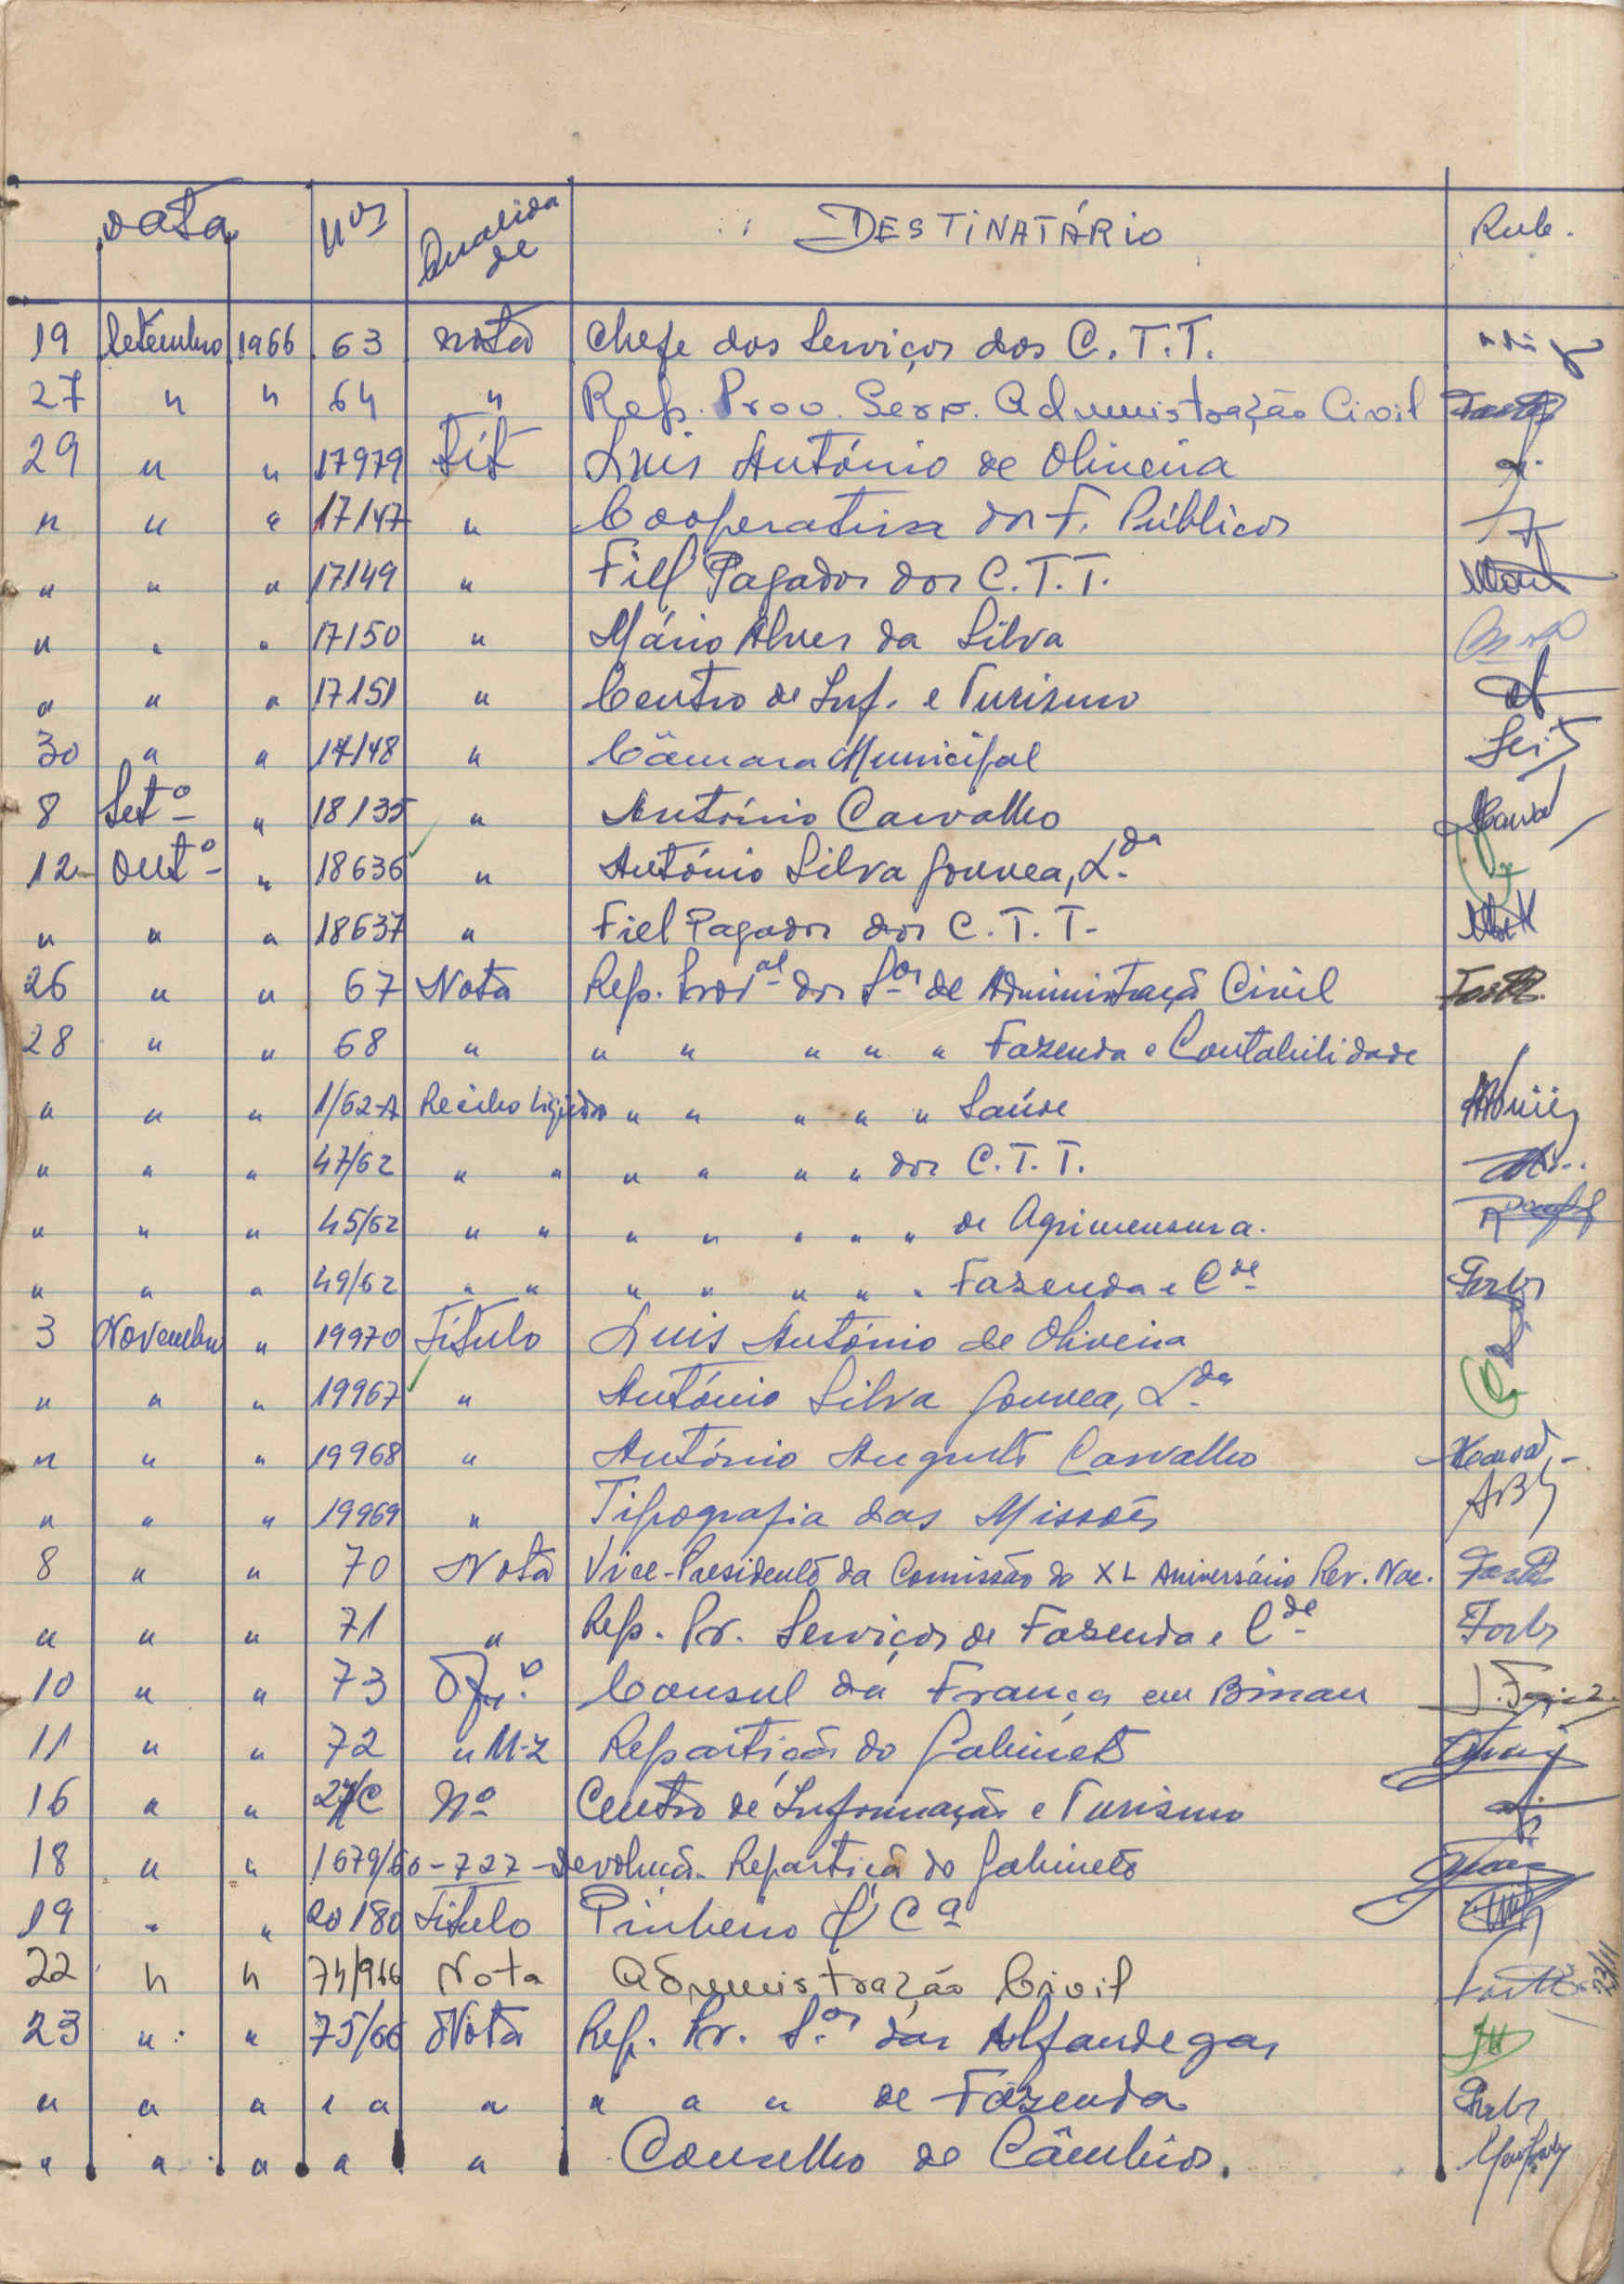 Data Nos Qualidade DESTINATÁRIO Rub.
19 Setembro 1966 63 nota Chefe dos Serviços dos C.T.T.
27 " " 64 " Rep. Prov. Serv. Administração Civil
29 " " 17979 Tít Luis António de Oliveira
" " " 17147 " Cooperativa dos F. Públicos
" " " 17149 " Fiel Pagador dos C.T.T.
" " " 17150 " Mário Alves da Silva
" " " 17151 " Centro de Inf. e Turismo
30 " " 17148 " Câmara Municipal
8 Setº " 18135 " António Carvalho
12 Outº " 18636 " António Silva Gouvea, L.da
" " " 18637 " Fiel Pagador dos C.T.T.
26 " " 67 Nota Rep. Proval dos S.os de Administração Civil
28 " " 68 " " " " " " Fazenda e Contabilidade
" " " 1/62-A Recibo " " " " " Saúde
" " " 47/62 " " " " " " dos C.T.T.
" " " 45/62 " " " " " " " de Agrimensura.
" " " 49/62 " " " " " " " Fazenda e Cde
3 Novembro " 19970 Título Luis António de Oliveira
" " " 19967 " António Silva Gouvea, L.da
" " " 19968 " António Augusto Carvalho
" " " 19969 " Tipografia das Missões
8 " " 70 Nota Vice-Presidente da Comissão do XL Aniversário Rev. Nac.
" " " 71 " Rep. Pr. Serviços de Fazenda e Cde
10 " " 73 Of.º Consul da França em Bissau
11 " " 72 " M-Z Repartição do Gabinete
16 " " 27/C Nº Centro de Informação e Turismo
18 " " 1679/60-727-Devolução Repartição do Gabinete
19 " " 20180 Título Pinheiro & Cª
22 " " 74/966 Nota Administração Civil 23/11
23 " " 75/66 Nota Rep. Pr. S.os das Alfandegas
" " " " " " " " " de Fazenda
" " " " " Conselho de Câmbios.